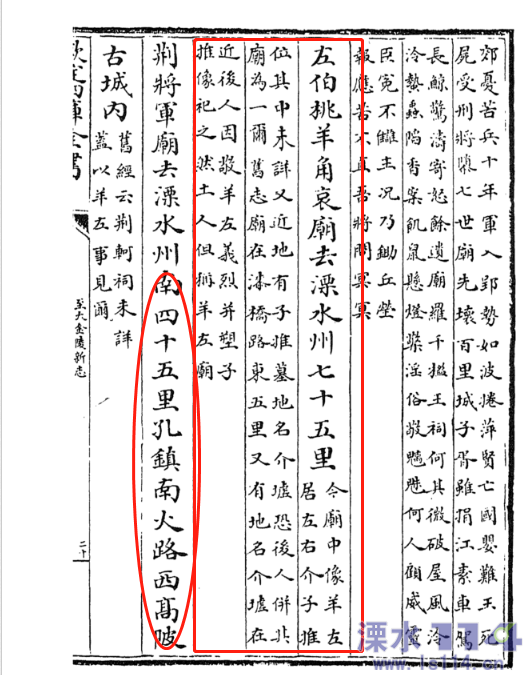 郊憂苦兵十年軍入郢勢如波捲萍賢亡國嬰難王死
屍受刑將隳七世廟先壞百里城子胥雖捐江素車駕
長鯨驚濤寄怒餘遺廟羅千楹王祠何其微破屋風泠
泠蟄蟲陷香案飢鼠懸燈檠淫俗敬魑魅何人顧威靈
臣冤不讎主況乃鋤丘塋
報應苦不直吾將問冥冥
左伯桃羊角哀廟去溧水州七十五里
今廟中像羊左
居左右介子推
位其中未詳又近地有子推墓地名介墟恐後人併此
廟為一爾舊志廟在漆橋路東五里又有地名介墟在
近後人因敬羊左義烈并塑子
推像祀之然土人但稱羊左廟
荆將軍廟去溧水州南四十五里孔鎮南火路西髙陂
古城內
舊經云荆軻祠未詳
蓋以羊左事見爾
欽定四庫全書
至大金陵新志
二十
溧水114
www.ls114.cn